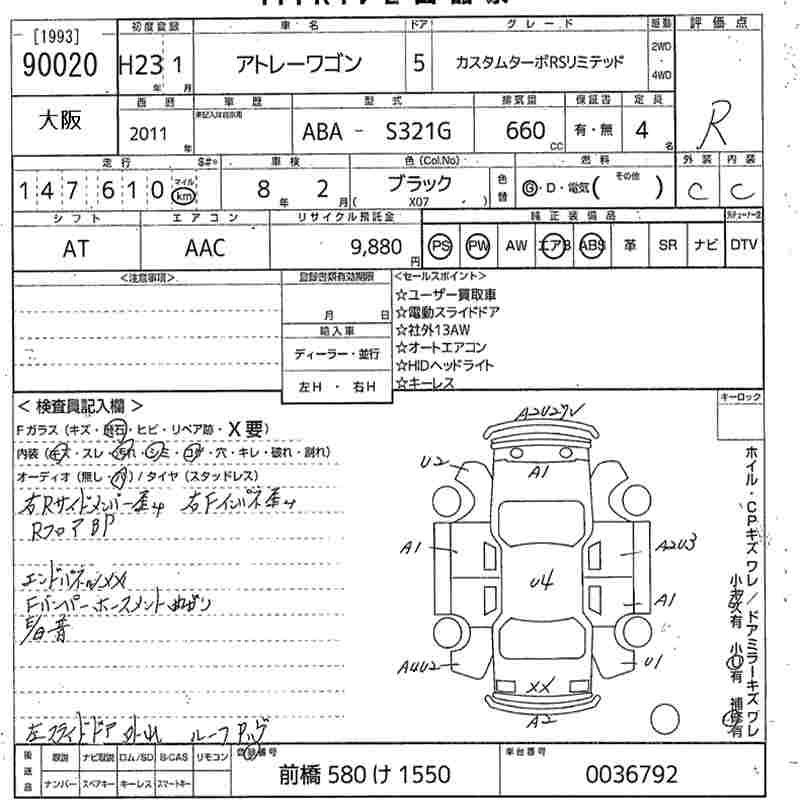 [1993]
90020
初度登録
H23 1
年 月
車名
アトレーワゴン
ドア
5
グレード
カスタムターボRSリミテッド
駆動
2WD
・
4WD
評価点
R
大阪
西暦
2011
年
車歴
未記入は自家用
型式
ABA - S321G
排気量
660
CC
保証書
有・無
定員
4
名
走行 S#*
147610 マイル km
車検
8 年 2 月
色(Col.No)
ブラック
( X07 )
色替
燃料
G・D・電気( その他 )
外装
C
内装
C
シフト
AT
エアコン
AAC
リサイクル預託金
9,880
円
純正装備品
PS PW AW エアB ABS 革 SR ナビ DTV
<注意事項>
登録書類有効期限
月 日
輸入車
ディーラー・並行
左H ・ 右H
<セールスポイント>
☆ユーザー買取車
☆電動スライドドア
☆社外13AW
☆オートエアコン
☆HIDヘッドライト
☆キーレス
キーロック
< 検査員記入欄 >
Fガラス(キズ・飛石・ヒビ・リペア跡・X要)
内装(キズ・スレ・汚れ・シミ・コゲ・穴・キレ・破れ・割れ)
オーディオ(無し・ハ)/タイヤ(スタッドレス)
右Rサイドメンバー歪み 右Fインパネ歪み
Rフロア BP
エンドパネルXX
Fバンパーホースメント曲がり
異音
左スライドドア 外れ ルーフ
A2
U2
A1
A1
A2U3
U4
A1
A4U2
U1
XX
A2
ホイル・CPキズワレ/ドアミラーキズワレ
小 有 小U有 補修有
後送品
取説 ナビ取説 ロム/SD B-CAS リモコン
ナンバー スペアキー キーレス スマートキー
登録番号
前橋 580 け 1550
車台番号
0036792